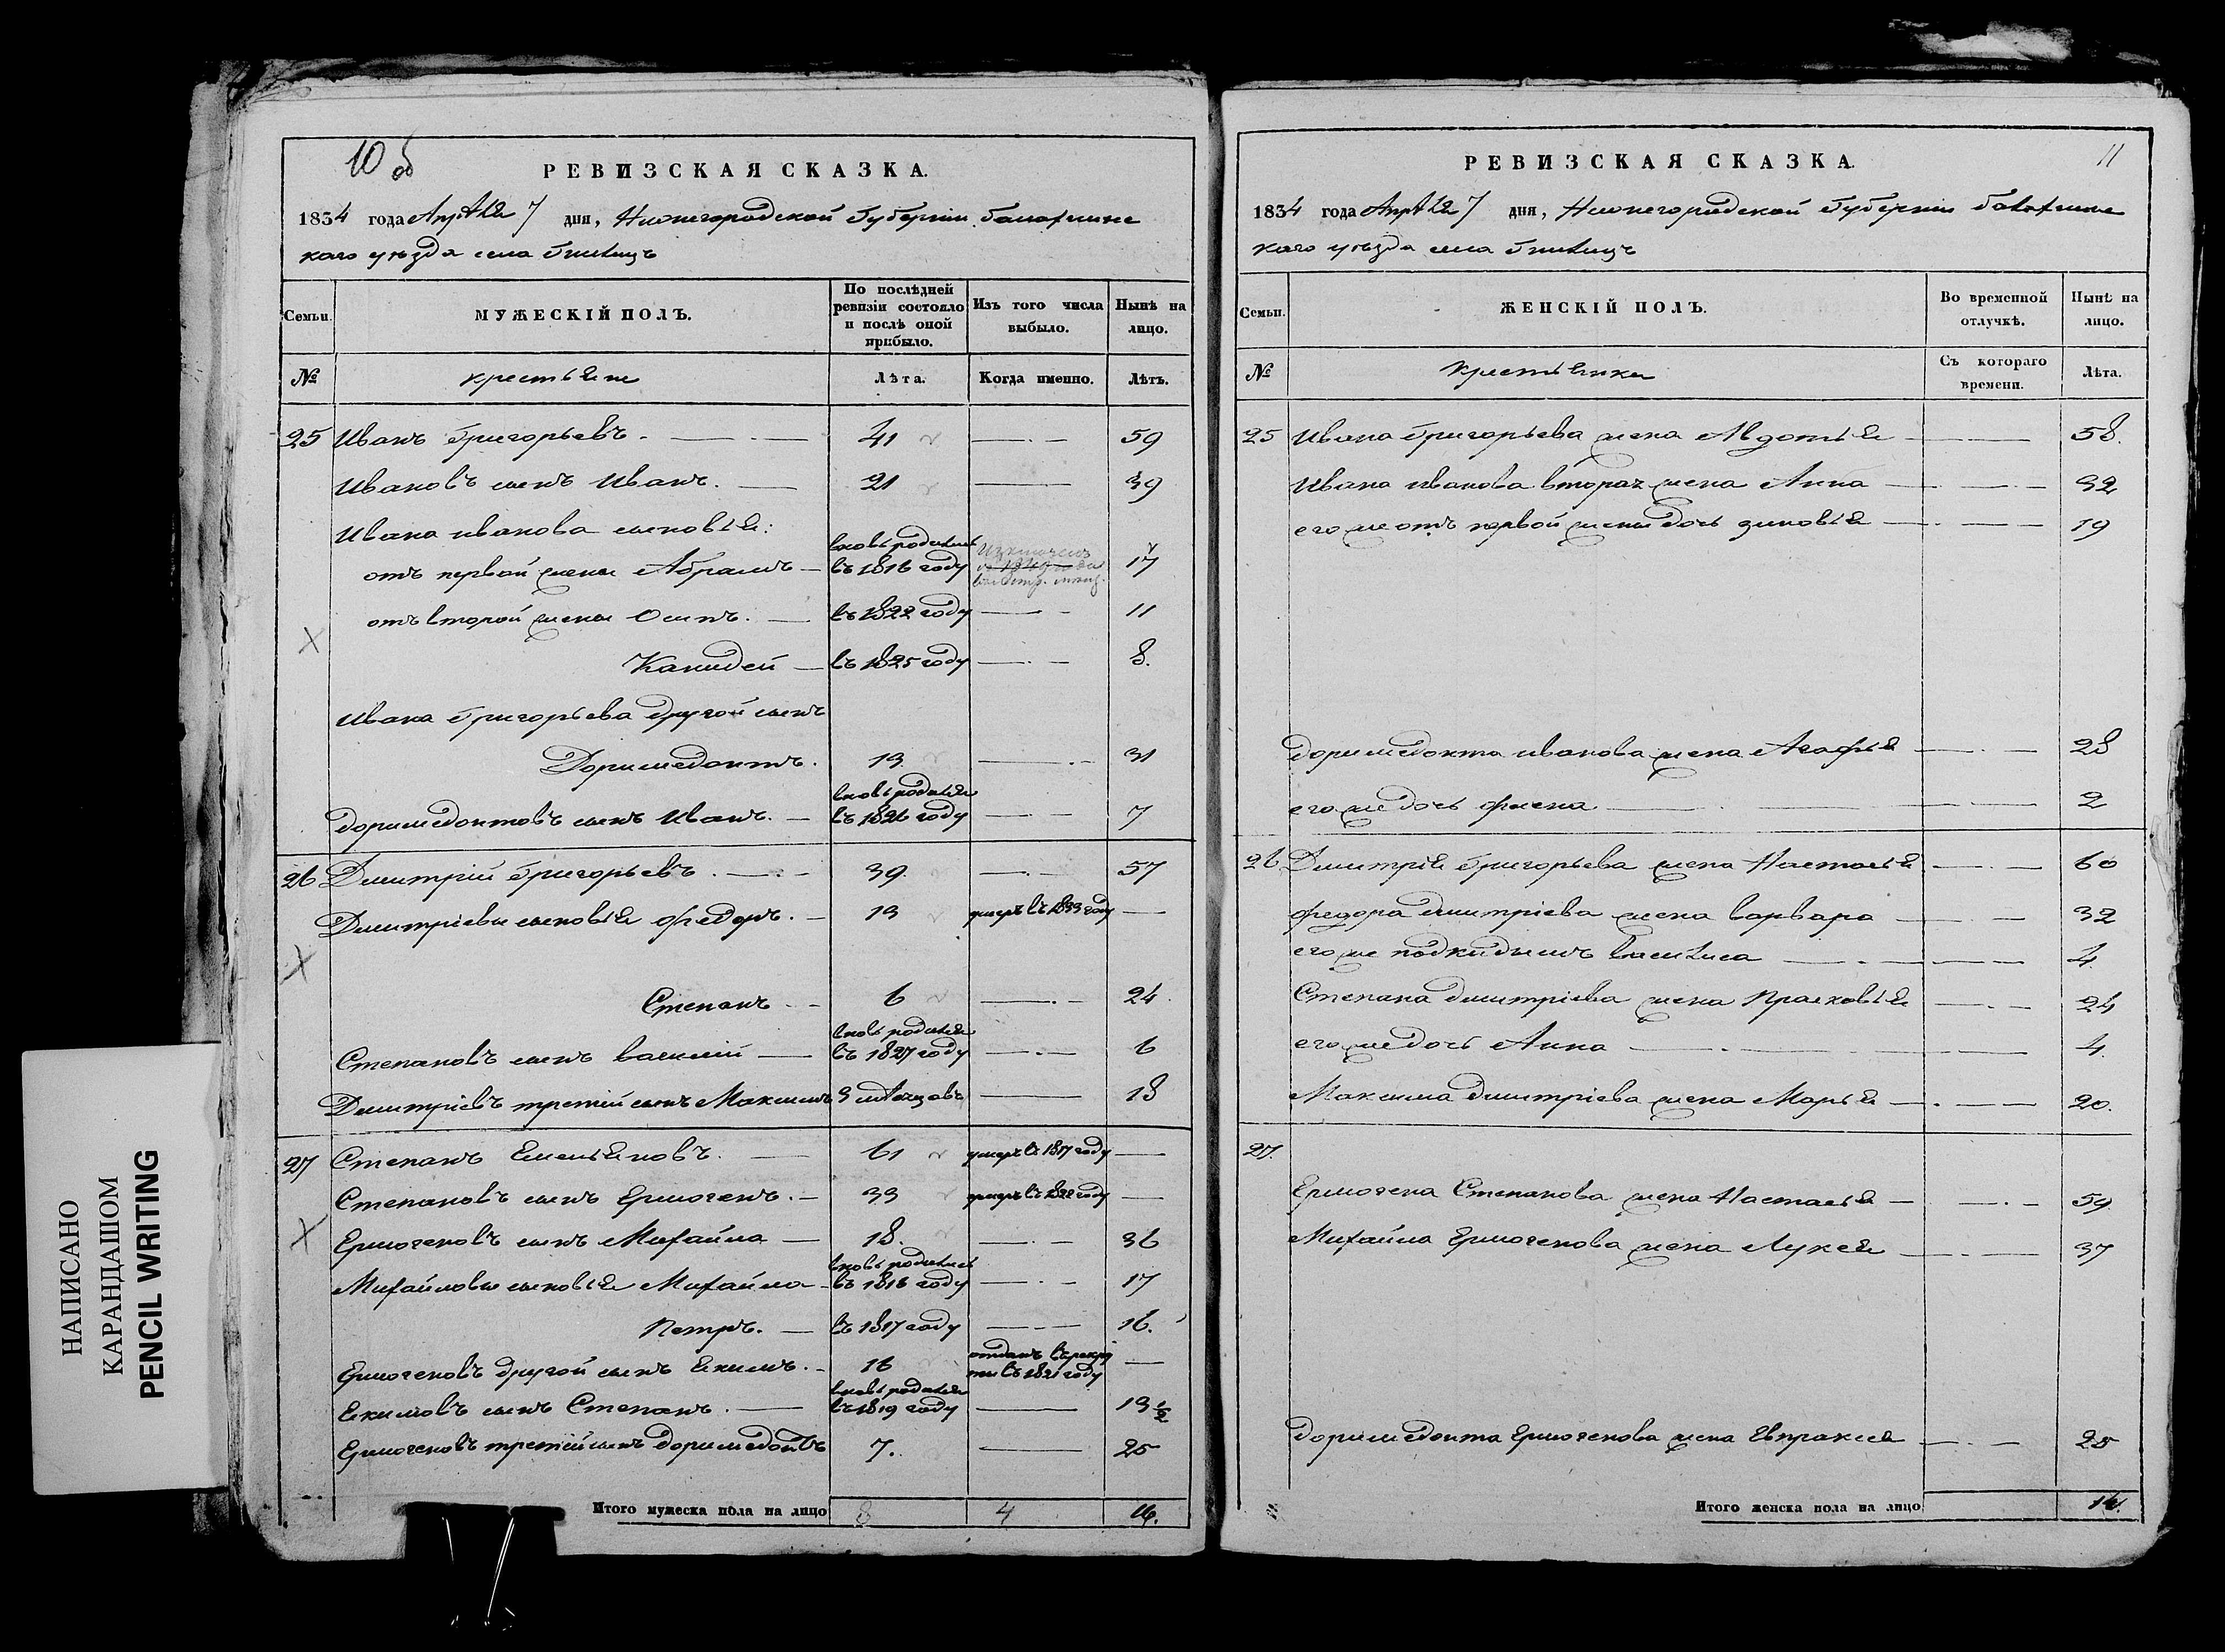 10 об
РЕВИЗСКАЯ СКАЗКА.
1834 года Апрѣля 7 дня, Нижегородской Губерніи Балахнинс
каго уѣзда села Гнилицъ
Семьи.
МУЖЕСКІЙ ПОЛЪ.
По послѣдней ревизіи состояло и послѣ оной прибыло.
Изъ того числа выбыло.
Нынѣ на лицо.
№
крестьяне
Лѣта.
Когда именно.
Лѣтъ.
25 Иванъ Григорьевъ. 41 59
Ивановъ сынъ Иванъ. 21 39
Ивана Иванова сыновья:
вновь родились
отъ первой жены Абрамъ въ 1816 году 17
отъ второй жены Осипъ. въ 1822 году 11
Канидей въ 1825 году 8.
Ивана Григорьева другой сынъ
Доримедонтъ. 13 31
вновь родился
Доримедонтовъ сынъ Иванъ. въ 1826 году 7
26 Димитрій Григорьевъ. 39. 57
Димитріевы сыновья Федоръ. 13 умеръ въ 1833 году
Степанъ 6 24.
вновь родился
Степановъ сынъ Василій въ 1827 году 6
Димитріевъ третій сынъ Максимъ 3 мѣсяцовъ 18
27 Степанъ Емельяновъ. 61 умеръ въ 1817 году
Степановъ сынъ Ермогенъ. 33 умеръ въ 1822 году
Ермогеновъ сынъ Михайла 18. 36
вновь родились
Михайловы сыновья Михайла въ 1816 году 17
Петръ. въ 1817 году 16.
отданъ въ рекру
Ермогеновъ другой сынъ Екимъ. 16 ты въ 1821 году
вновь родился
Екимовъ сынъ Степанъ. въ 1819 году 13 1/2
Ермогеновъ третій сынъ Доримедонтъ 7. 25
Итого мужеска пола на лицо 8 4 16.
11
РЕВИЗСКАЯ СКАЗКА.
1834 года Апрѣля 7 дня, Нижегородской Губерніи Балахнинс
каго уѣзда села Гнилицъ
Семьи.
ЖЕНСКІЙ ПОЛЪ.
Во временной отлучкѣ.
Нынѣ на лицо.
№
крестьянки
Съ котораго времени.
Лѣта.
25 Ивана Григорьева жена Авдотья 58.
Ивана Иванова вторая жена Анна 32
его же отъ первой жены дочь Зиновья 19
Доримедонта Иванова жена Агафья 28
его же дочь Фиена. 2
26 Димитрія Григорьева жена Настасья 60
Федора Димитріева жена Варвара 32
его же подкидышъ Василиса 4.
Степана Димитріева жена Прасковья 24
его же дочь Анна 4.
Максима Димитріева жена Марья 20.
27.
Ермогена Степанова жена Настасья 59.
Михайла Ермогенова жена Лукея 37
Доримедонта Ермогенова жена Евпраксея 25
Итого женска пола на лицо 14.
НАПИСАНО
КАРАНДАШОМ
PENCIL WRITING